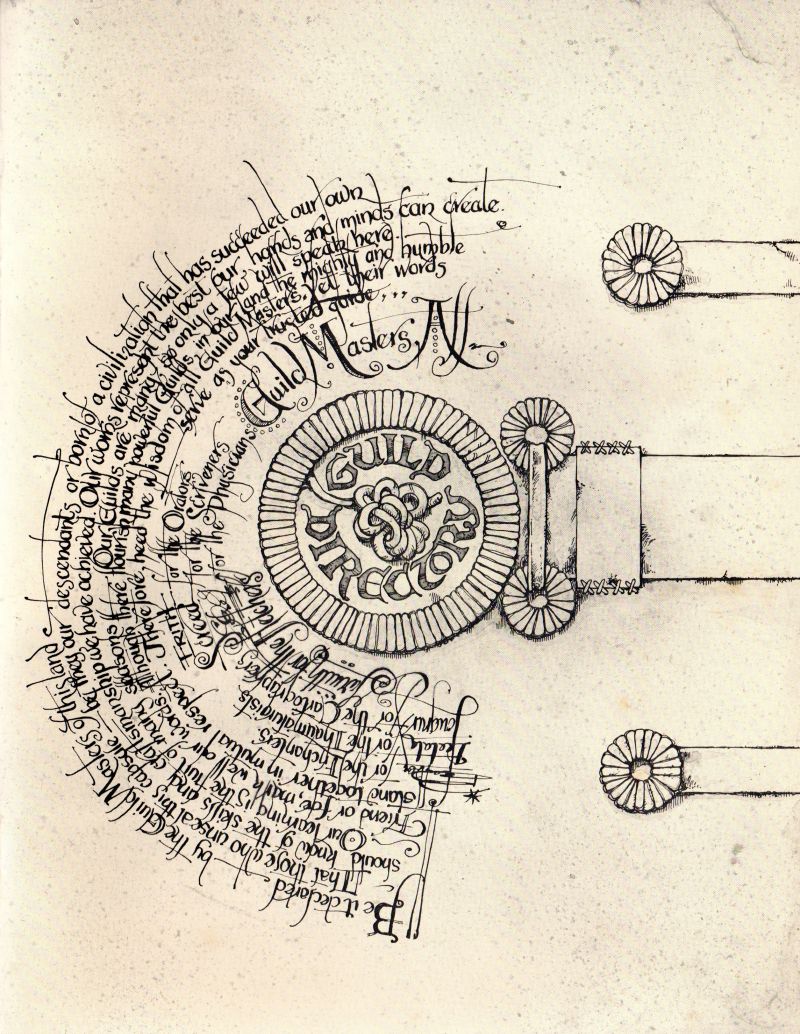 Be it declared by the Guild Masters of this land
That those who unseal this capsule, be they our descendants or born of a civilization that has succeeded our own
should know of the skills and craftsmanship we have achieved. Our words represent the best our hands and minds can create.
Our learning is the fruit of many seasons. Our Guilds are many, so only a few will speak here.
Friend or foe, mark well our words, although there flourish many powerful Guilds in our land, the mighty and humble
stand together in mutual respect. Therefore, heed the wisdom of all Guild Masters. Let their words
serve as your trusted guide...
for the Enchanters
for the Thaumaturgists
for the Cartographers
for the Fletchers
for the Orators
for the Scriveners
for the Physicians
Guild Masters, All
GUILD
DIRECTORY